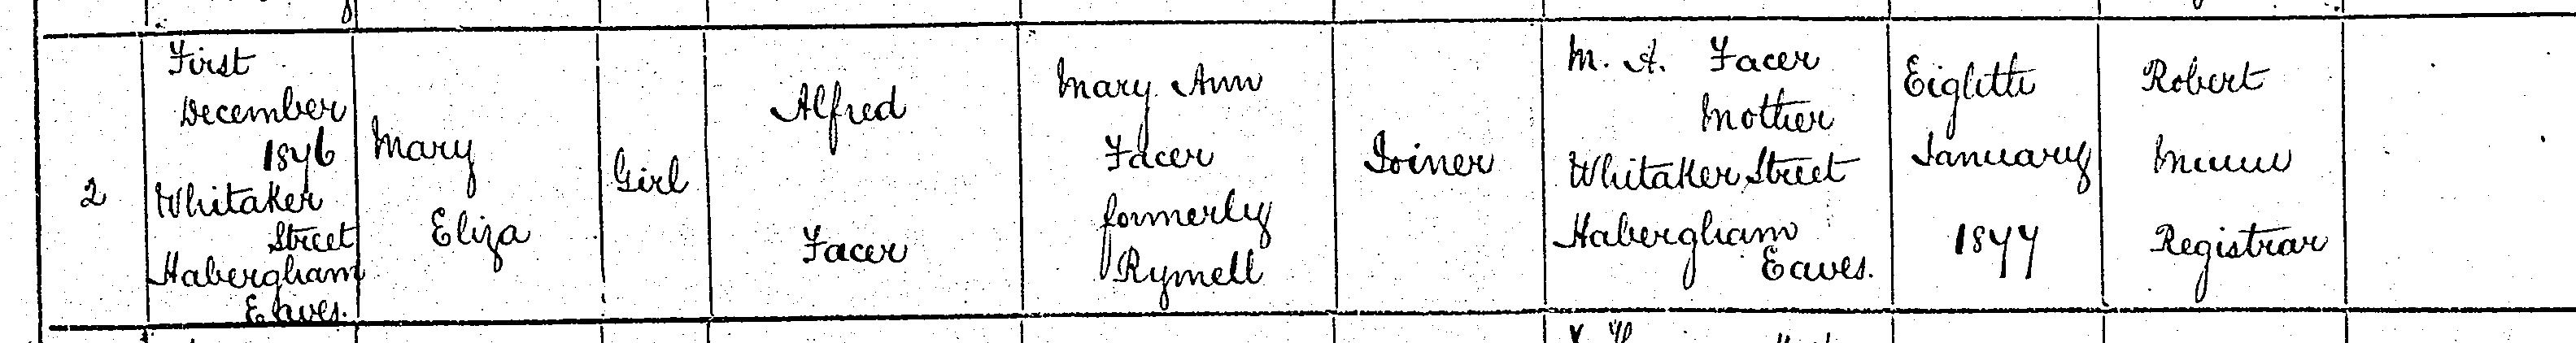 2
First
December
1876
Whitaker
Street
Habergham
Eaves.
Mary
Eliza
Girl
Alfred
Facer
Mary Ann
Facer
formerly
Rymell
Joiner
M. A. Facer
Mother
Whitaker Street
Habergham
Eaves.
Eighth
January
1877
Robert
Registrar